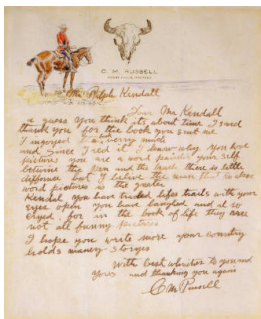 C. M. RUSSELL
GREAT FALLS, MONTANA
Mr Ralph Kendall
Dear Mr Kendall
I guess you think its about time I said
thank you for the book you sent me
I injoyed that very much
and since I red it I know why you love
pictures you are a word painter your self
betwine the pen and the brush there is little
diffornce but I believe the man that makes
word pictures is the greater
Kendal you have tracked lifes trails with your
eyes open you have laughed and al so
cryed for in the book of life they are
not all funny pictures
I hope you write more your country
holds maney storyes
With best whishes to you and
yours and thanking you again
C M Russell